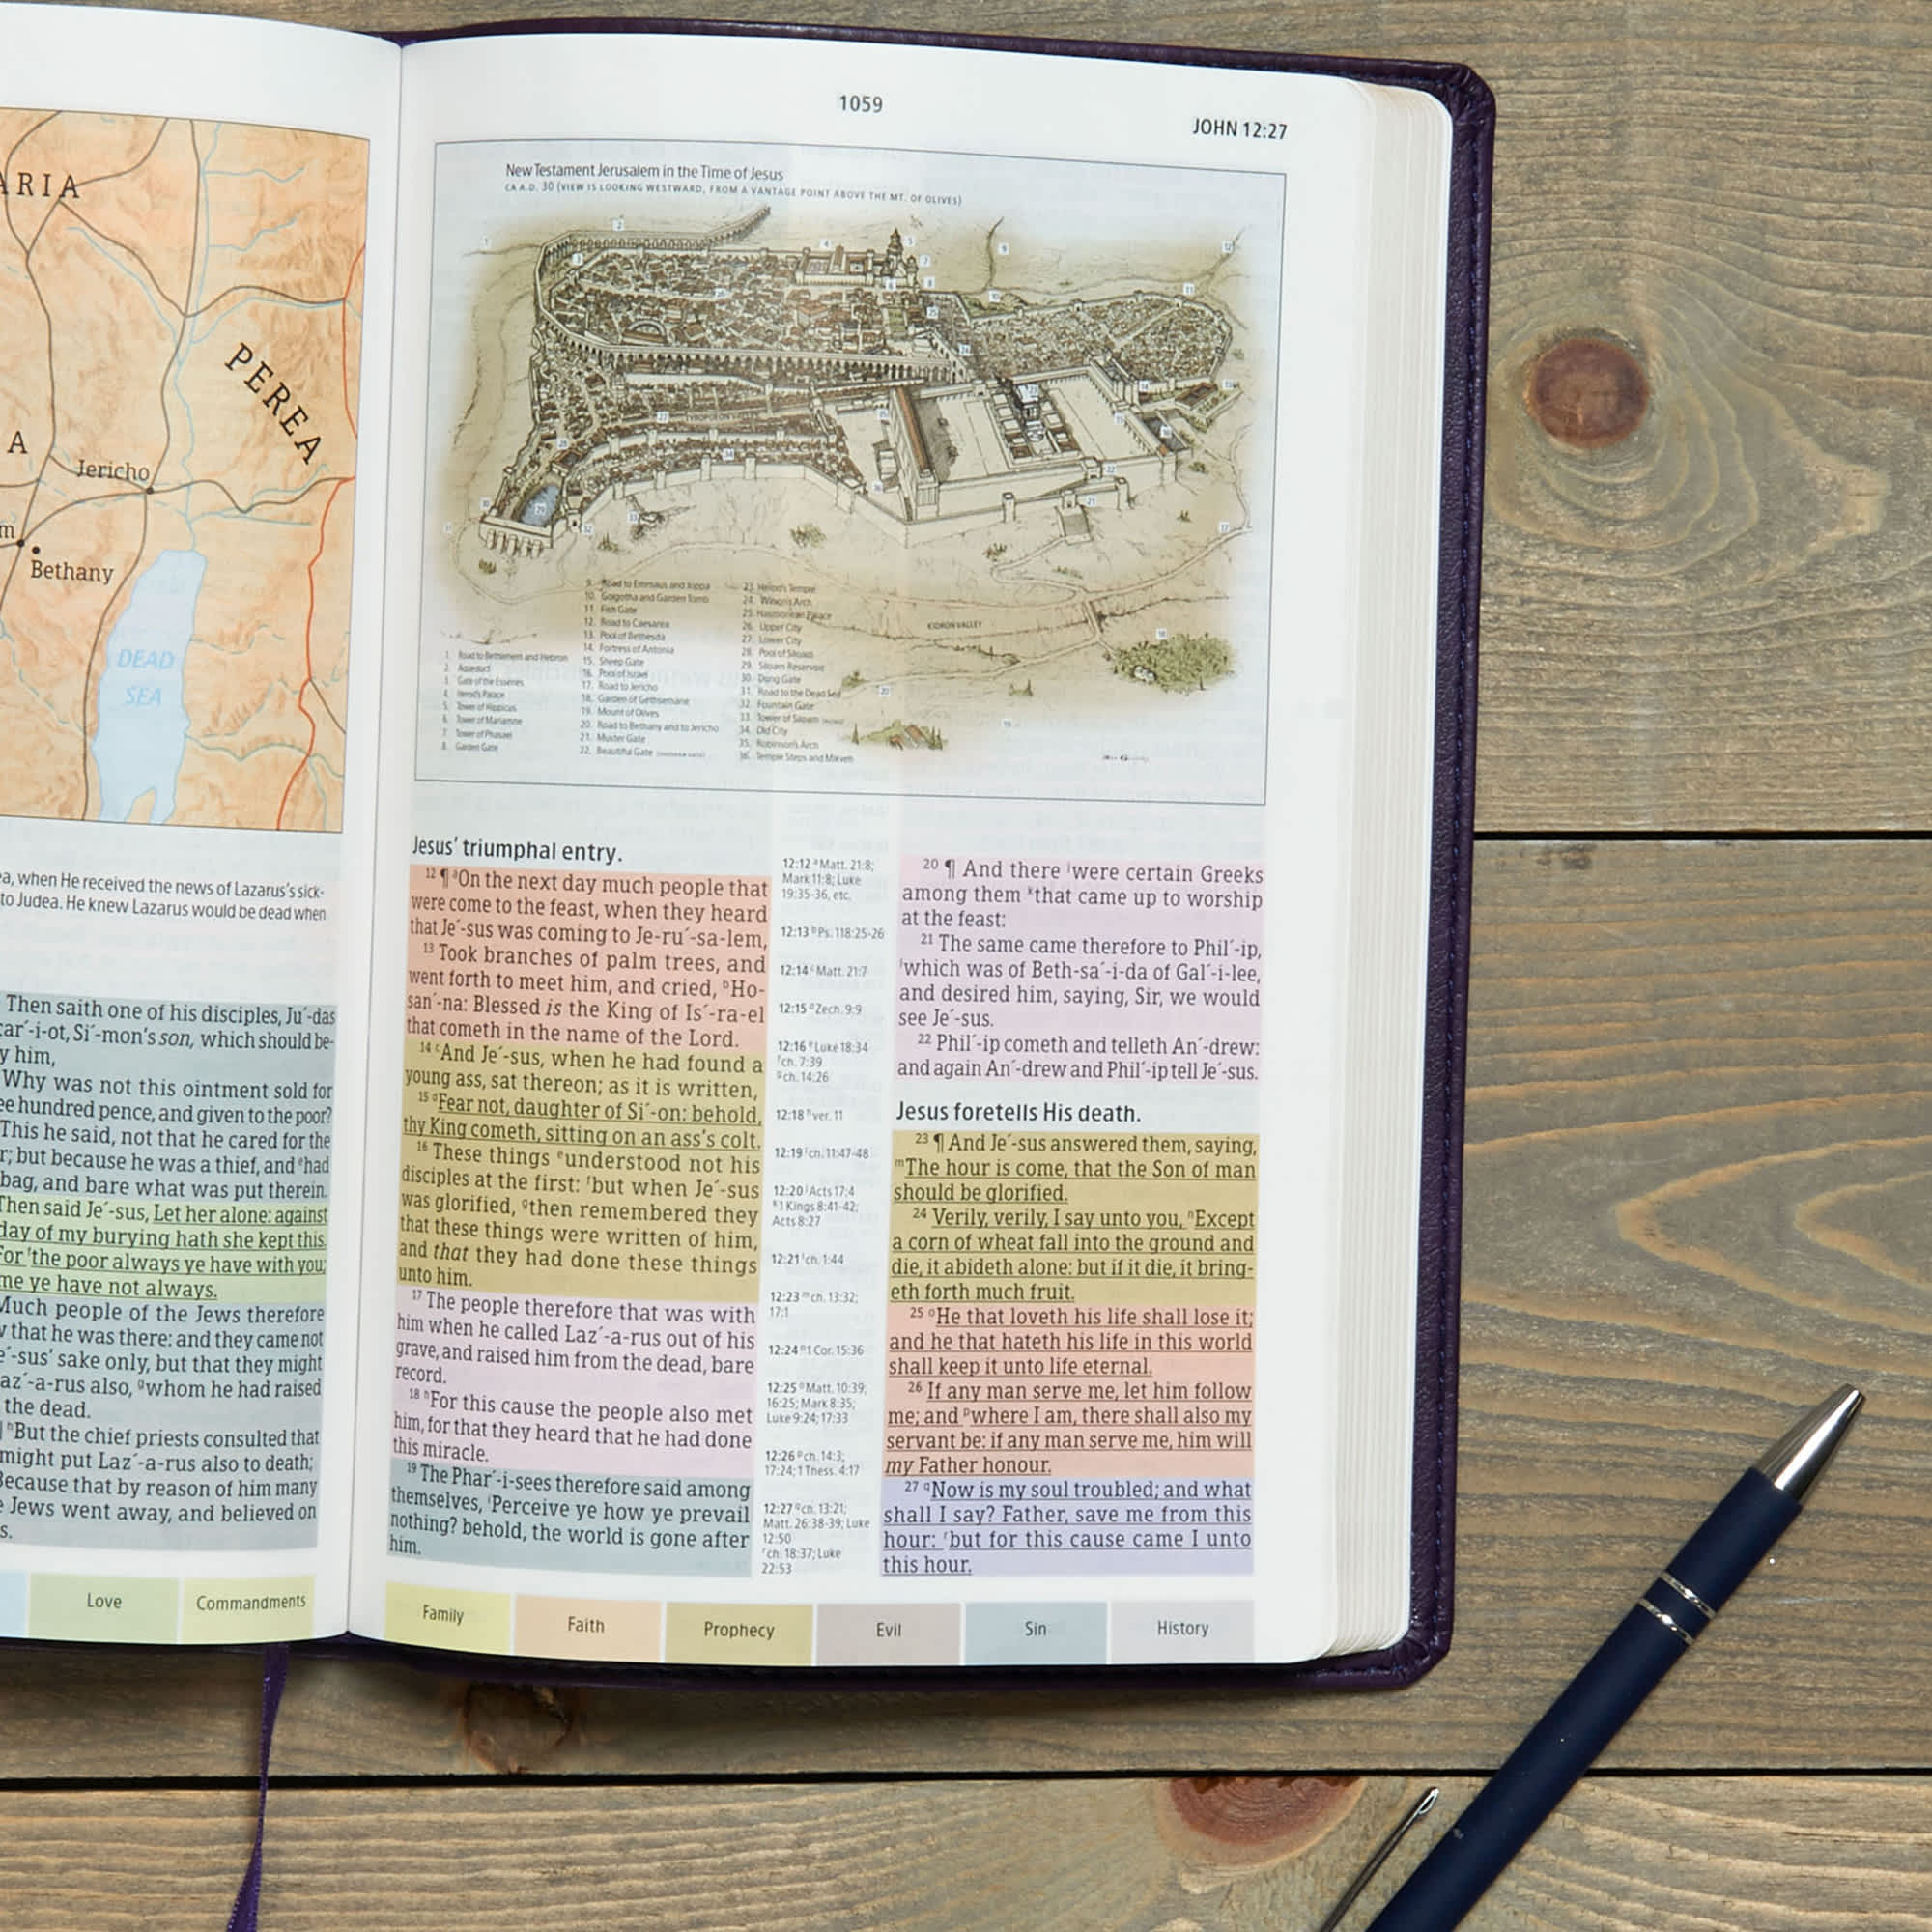 ARIA
PEREA
A
Jericho
m
Bethany
DEAD
SEA
ea, when He received the news of Lazarus's sick-
to Judea. He knew Lazarus would be dead when
Then saith one of his disciples, Ju´-das
car´-i-ot, Si´-mon's son, which should be-
y him,
Why was not this ointment sold for
ee hundred pence, and given to the poor?
This he said, not that he cared for the
r; but because he was a thief, and ᵉhad
bag, and bare what was put therein.
Then said Je´-sus, Let her alone: against
day of my burying hath she kept this.
For ᶠthe poor always ye have with you;
me ye have not always.
Much people of the Jews therefore
w that he was there: and they came not
e´-sus' sake only, but that they might
az´-a-rus also, ᵍwhom he had raised
the dead.
ʰBut the chief priests consulted that
might put Laz´-a-rus also to death;
Because that by reason of him many
e Jews went away, and believed on
s.
Love
Commandments
1059
JOHN 12:27
New Testament Jerusalem in the Time of Jesus
CA A.D. 30 (VIEW IS LOOKING WESTWARD, FROM A VANTAGE POINT ABOVE THE MT. OF OLIVES)
KIDRON VALLEY
1. Road to Bethlehem and Hebron
2. Aqueduct
3. Gate of the Essenes
4. Herod's Palace
5. Tower of Hippicus
6. Tower of Mariamne
7. Tower of Phasael
8. Garden Gate
9. Road to Emmaus and Joppa
10. Golgotha and Garden Tomb
11. Fish Gate
12. Road to Caesarea
13. Pool of Bethesda
14. Fortress of Antonia
15. Sheep Gate
16. Pool of Israel
17. Road to Jericho
18. Garden of Gethsemane
19. Mount of Olives
20. Road to Bethany and to Jericho
21. Muster Gate
22. Beautiful Gate
23. Herod's Temple
24. Wilson's Arch
25. Hasmonean Palace
26. Upper City
27. Lower City
28. Pool of Siloam
29. Siloam Reservoir
30. Dung Gate
31. Road to the Dead Sea
32. Fountain Gate
33. Tower of Siloam
34. Old City
35. Robinson's Arch
36. Temple Steps and Mikveh
Jesus' triumphal entry.
12 ¶ ᵃOn the next day much people that
were come to the feast, when they heard
that Je´-sus was coming to Je-ru´-sa-lem,
13 Took branches of palm trees, and
went forth to meet him, and cried, ᵇHo-
san´-na: Blessed is the King of Is´-ra-el
that cometh in the name of the Lord.
14 ᶜAnd Je´-sus, when he had found a
young ass, sat thereon; as it is written,
15 ᵈFear not, daughter of Si´-on: behold,
thy King cometh, sitting on an ass's colt.
16 These things ᵉunderstood not his
disciples at the first: ᶠbut when Je´-sus
was glorified, ᵍthen remembered they
that these things were written of him,
and that they had done these things
unto him.
17 The people therefore that was with
him when he called Laz´-a-rus out of his
grave, and raised him from the dead, bare
record.
18 ʰFor this cause the people also met
him, for that they heard that he had done
this miracle.
19 The Phar´-i-sees therefore said among
themselves, ⁱPerceive ye how ye prevail
nothing? behold, the world is gone after
him.
12:12 ᵃMatt. 21:8;
Mark 11:8; Luke
19:35-36, etc.
12:13 ᵇPs. 118:25-26
12:14 ᶜMatt. 21:7
12:15 ᵈZech. 9:9
12:16 ᵉLuke 18:34
ᶠch. 7:39
ᵍch. 14:26
12:18 ʰver. 11
12:19 ⁱch. 11:47-48
12:20 ʲActs 17:4
ᵏ1 Kings 8:41-42;
Acts 8:27
12:21 ˡch. 1:44
12:23 ᵐch. 13:32;
17:1
12:24 ⁿ1 Cor. 15:36
12:25 ᵒMatt. 10:39;
16:25; Mark 8:35;
Luke 9:24; 17:33
12:26 ᵖch. 14:3;
17:24; 1 Thess. 4:17
12:27 ᵠch. 13:21;
Matt. 26:38-39; Luke
12:50
ʳch. 18:37; Luke
22:53
20 ¶ And there ʲwere certain Greeks
among them ᵏthat came up to worship
at the feast:
21 The same came therefore to Phil´-ip,
ˡwhich was of Beth-sa´-i-da of Gal´-i-lee,
and desired him, saying, Sir, we would
see Je´-sus.
22 Phil´-ip cometh and telleth An´-drew:
and again An´-drew and Phil´-ip tell Je´-sus.
Jesus foretells His death.
23 ¶ And Je´-sus answered them, saying,
ᵐThe hour is come, that the Son of man
should be glorified.
24 Verily, verily, I say unto you, ⁿExcept
a corn of wheat fall into the ground and
die, it abideth alone: but if it die, it bring-
eth forth much fruit.
25 ᵒHe that loveth his life shall lose it;
and he that hateth his life in this world
shall keep it unto life eternal.
26 If any man serve me, let him follow
me; and ᵖwhere I am, there shall also my
servant be: if any man serve me, him will
my Father honour.
27 ᵠNow is my soul troubled; and what
shall I say? Father, save me from this
hour: ʳbut for this cause came I unto
this hour.
Family
Faith
Prophecy
Evil
Sin
History